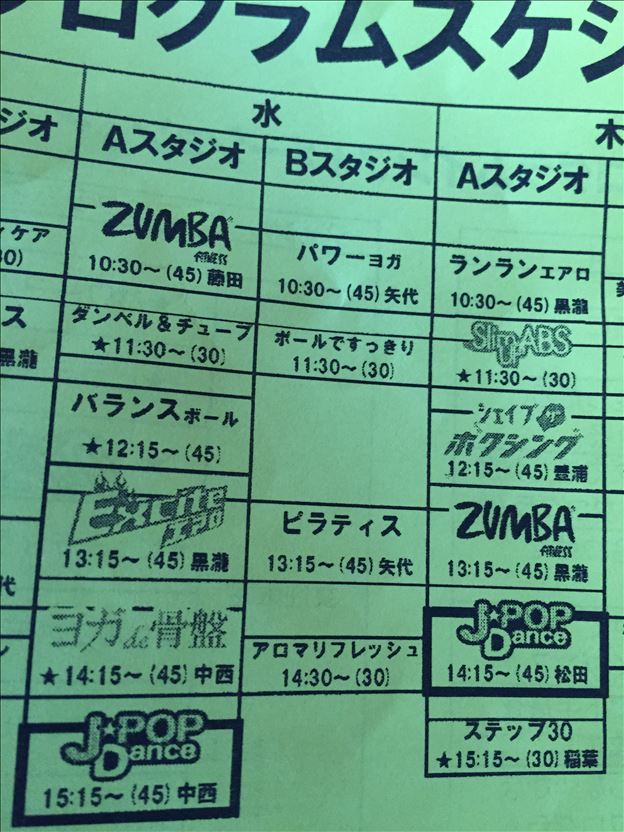 プログラムスケジ
水
木
ジオ
Aスタジオ
Bスタジオ
Aスタジオ
ケア
30)
ス
黒瀧
代
ZUMBA
FITNESS
10:30〜(45)藤田
ダンベル&チューブ
★11:30〜(30)
バランスボール
★12:15〜(45)
Exciteエアロ
13:15〜(45)黒瀧
ヨガde骨盤
★14:15〜(45)中西
J★POP
Dance
15:15〜(45)中西
パワーヨガ
10:30〜(45)矢代
ポールですっきり
11:30〜(30)
ピラティス
13:15〜(45)矢代
アロマリフレッシュ
14:30〜(30)
ランランエアロ
10:30〜(45)黒瀧
Slim UP ABS
★11:30〜(30)
シェイプUP
ボクシング
12:15〜(45)豊浦
ZUMBA
FITNESS
13:15〜(45)黒瀧
J★POP
Dance
14:15〜(45)松田
ステップ30
★15:15〜(30)稲葉